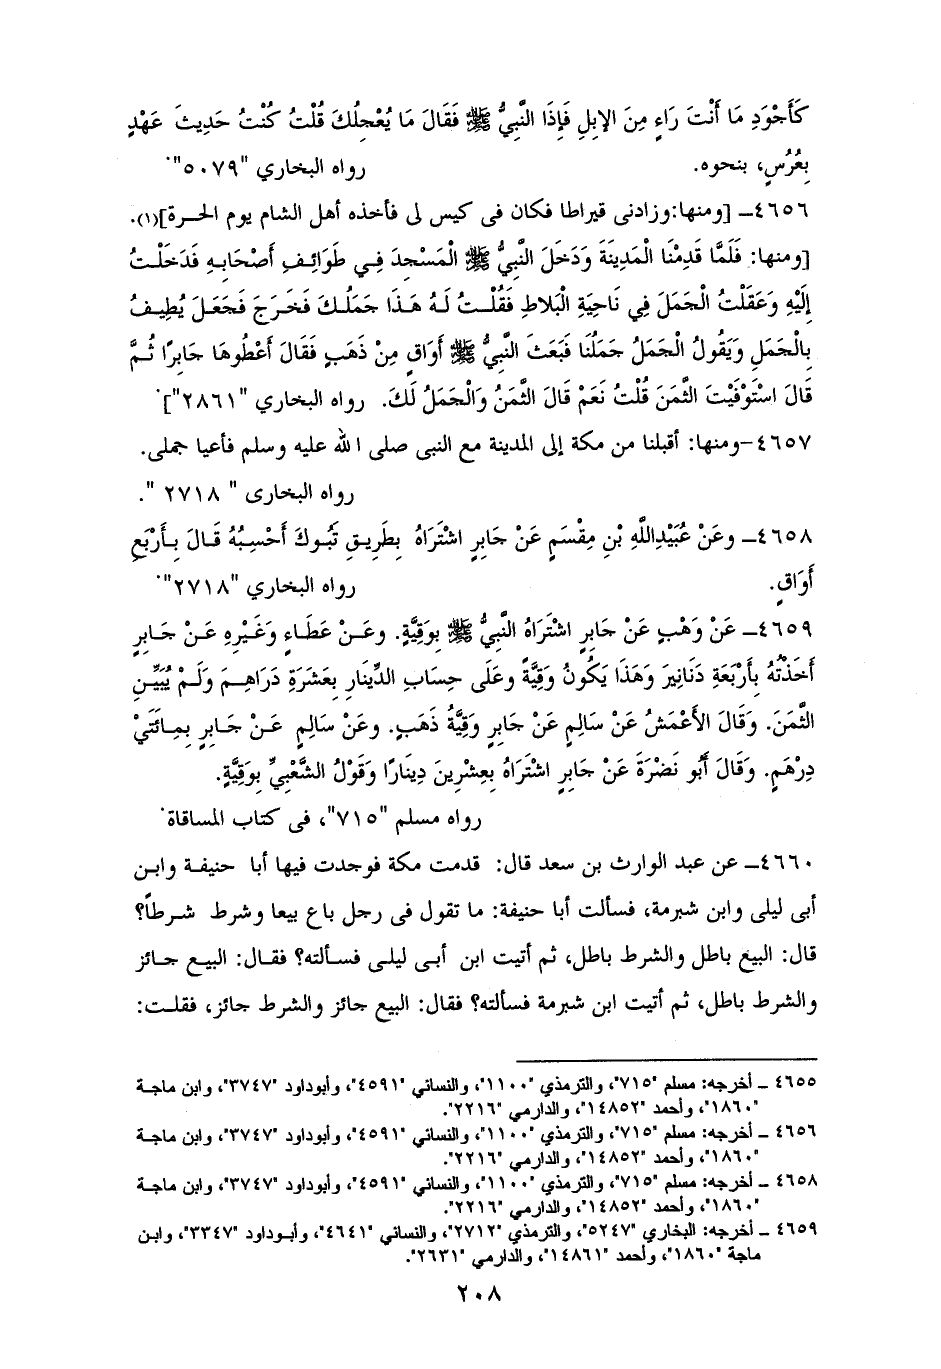 كَأَجْوَدِ مَا أَنْتَ رَاءٍ مِنَ الإِبِلِ فَإِذَا النَّبِيُّ ﷺ فَقَالَ مَا يُعْجِلُكَ قُلْتُ كُنْتُ حَدِيثَ عَهْدٍ
بِعُرُسٍ، بنحوه. رواه البخاري "٥٠٧٩".
٤٦٥٦ـ [ومنها:وزادنى قيراطا فكان فى كيس لى فأخذه أهل الشام يوم الحرة](١).
[ومنها: فَلَمَّا قَدِمْنَا الْمَدِينَةَ وَدَخَلَ النَّبِيُّ ﷺ الْمَسْجِدَ فِي طَوَائِفِ أَصْحَابِهِ فَدَخَلْتُ
إِلَيْهِ وَعَقَلْتُ الْجَمَلَ فِي نَاحِيَةِ الْبَلاطِ فَقُلْتُ لَهُ هَذَا جَمَلُكَ فَخَرَجَ فَجَعَلَ يُطِيفُ
بِالْجَمَلِ وَيَقُولُ الْجَمَلُ جَمَلُنَا فَبَعَثَ النَّبِيُّ ﷺ أَوَاقٍ مِنْ ذَهَبٍ فَقَالَ أَعْطُوهَا جَابِرًا ثُمَّ
قَالَ اسْتَوْفَيْتَ الثَّمَنَ قُلْتُ نَعَمْ قَالَ الثَّمَنُ وَالْجَمَلُ لَكَ. رواه البخاري "٢٨٦١"].
٤٦٥٧-ومنها: أقبلنا من مكة إلى المدينة مع النبى صلى الله عليه وسلم فأعيا جملى.
رواه البخارى " ٢٧١٨ ".
٤٦٥٨ـ وعَنْ عُبَيْدِاللَّهِ بْنِ مِقْسَمٍ عَنْ جَابِرٍ اشْتَرَاهُ بِطَرِيقِ تَبُوكَ أَحْسِبُهُ قَالَ بِأَرْبَعِ
أَوَاقٍ. رواه البخاري "٢٧١٨".
٤٦٥٩ـ عَنْ وَهْبٍ عَنْ جَابِرٍ اشْتَرَاهُ النَّبِيُّ ﷺ بِوَقِيَّةٍ. وعَنْ عَطَاءٍ وَغَيْرِهِ عَنْ جَابِرٍ
أَخَذْتُهُ بِأَرْبَعَةِ دَنَانِيرَ وَهَذَا يَكُونُ وَقِيَّةً وعَلَى حِسَابِ الدِّينَارِ بِعَشَرَةِ دَرَاهِمَ وَلَمْ يُبَيِّنِ
الثَّمَنَ. وَقَالَ الأَعْمَشُ عَنْ سَالِمٍ عَنْ جَابِرٍ وَقِيَّةُ ذَهَبٍ. وعَنْ سَالِمٍ عَنْ جَابِرٍ بِمِائَتَيْ
دِرْهَمٍ. وَقَالَ أَبُو نَضْرَةَ عَنْ جَابِرٍ اشْتَرَاهُ بِعِشْرِينَ دِينَارًا وَقَوْلُ الشَّعْبِيِّ بِوَقِيَّةٍ.
رواه مسلم "٧١٥"، فى كتاب المساقاة.
٤٦٦٠ـ عن عبد الوارث بن سعد قال: قدمت مكة فوجدت فيها أبا حنيفة وابن
أبى ليلى وابن شبرمة، فسألت أبا حنيفة: ما تقول فى رجل باع بيعا وشرط شرطاً؟
قال: البيع باطل والشرط باطل، ثم أتيت ابن أبى ليلى فسألته؟ فقال: البيع جائز
والشرط باطل، ثم أتيت ابن شبرمة فسألته؟ فقال: البيع جائز والشرط جائز، فقلت:
٤٦٥٥ ـ أخرجه: مسلم "٧١٥"، والترمذي "١١٠٠"، والنسائي "٤٥٩١"، وأبوداود "٣٧٤٧"، وابن ماجة
"١٨٦٠"، وأحمد "١٤٨٥٢"، والدارمي "٢٢١٦".
٤٦٥٦ ـ أخرجه: مسلم "٧١٥"، والترمذي "١١٠٠"، والنسائي "٤٥٩١"، وأبوداود "٣٧٤٧"، وابن ماجة
"١٨٦٠"، وأحمد "١٤٨٥٢"، والدارمي "٢٢١٦".
٤٦٥٨ ـ أخرجه: مسلم "٧١٥"، والترمذي "١١٠٠"، والنسائي "٤٥٩١"، وأبوداود "٣٧٤٧"، وابن ماجة
"١٨٦٠"، وأحمد "١٤٨٥٢"، والدارمي "٢٢١٦".
٤٦٥٩ ـ أخرجه: البخاري "٥٢٤٧"، والترمذي "٢٧١٢"، والنسائي "٤٦٤١"، وأبوداود "٣٣٤٧"، وابن
ماجة "١٨٦٠"، وأحمد "١٤٨٦١"، والدارمي "٢٦٣١".
٢٠٨